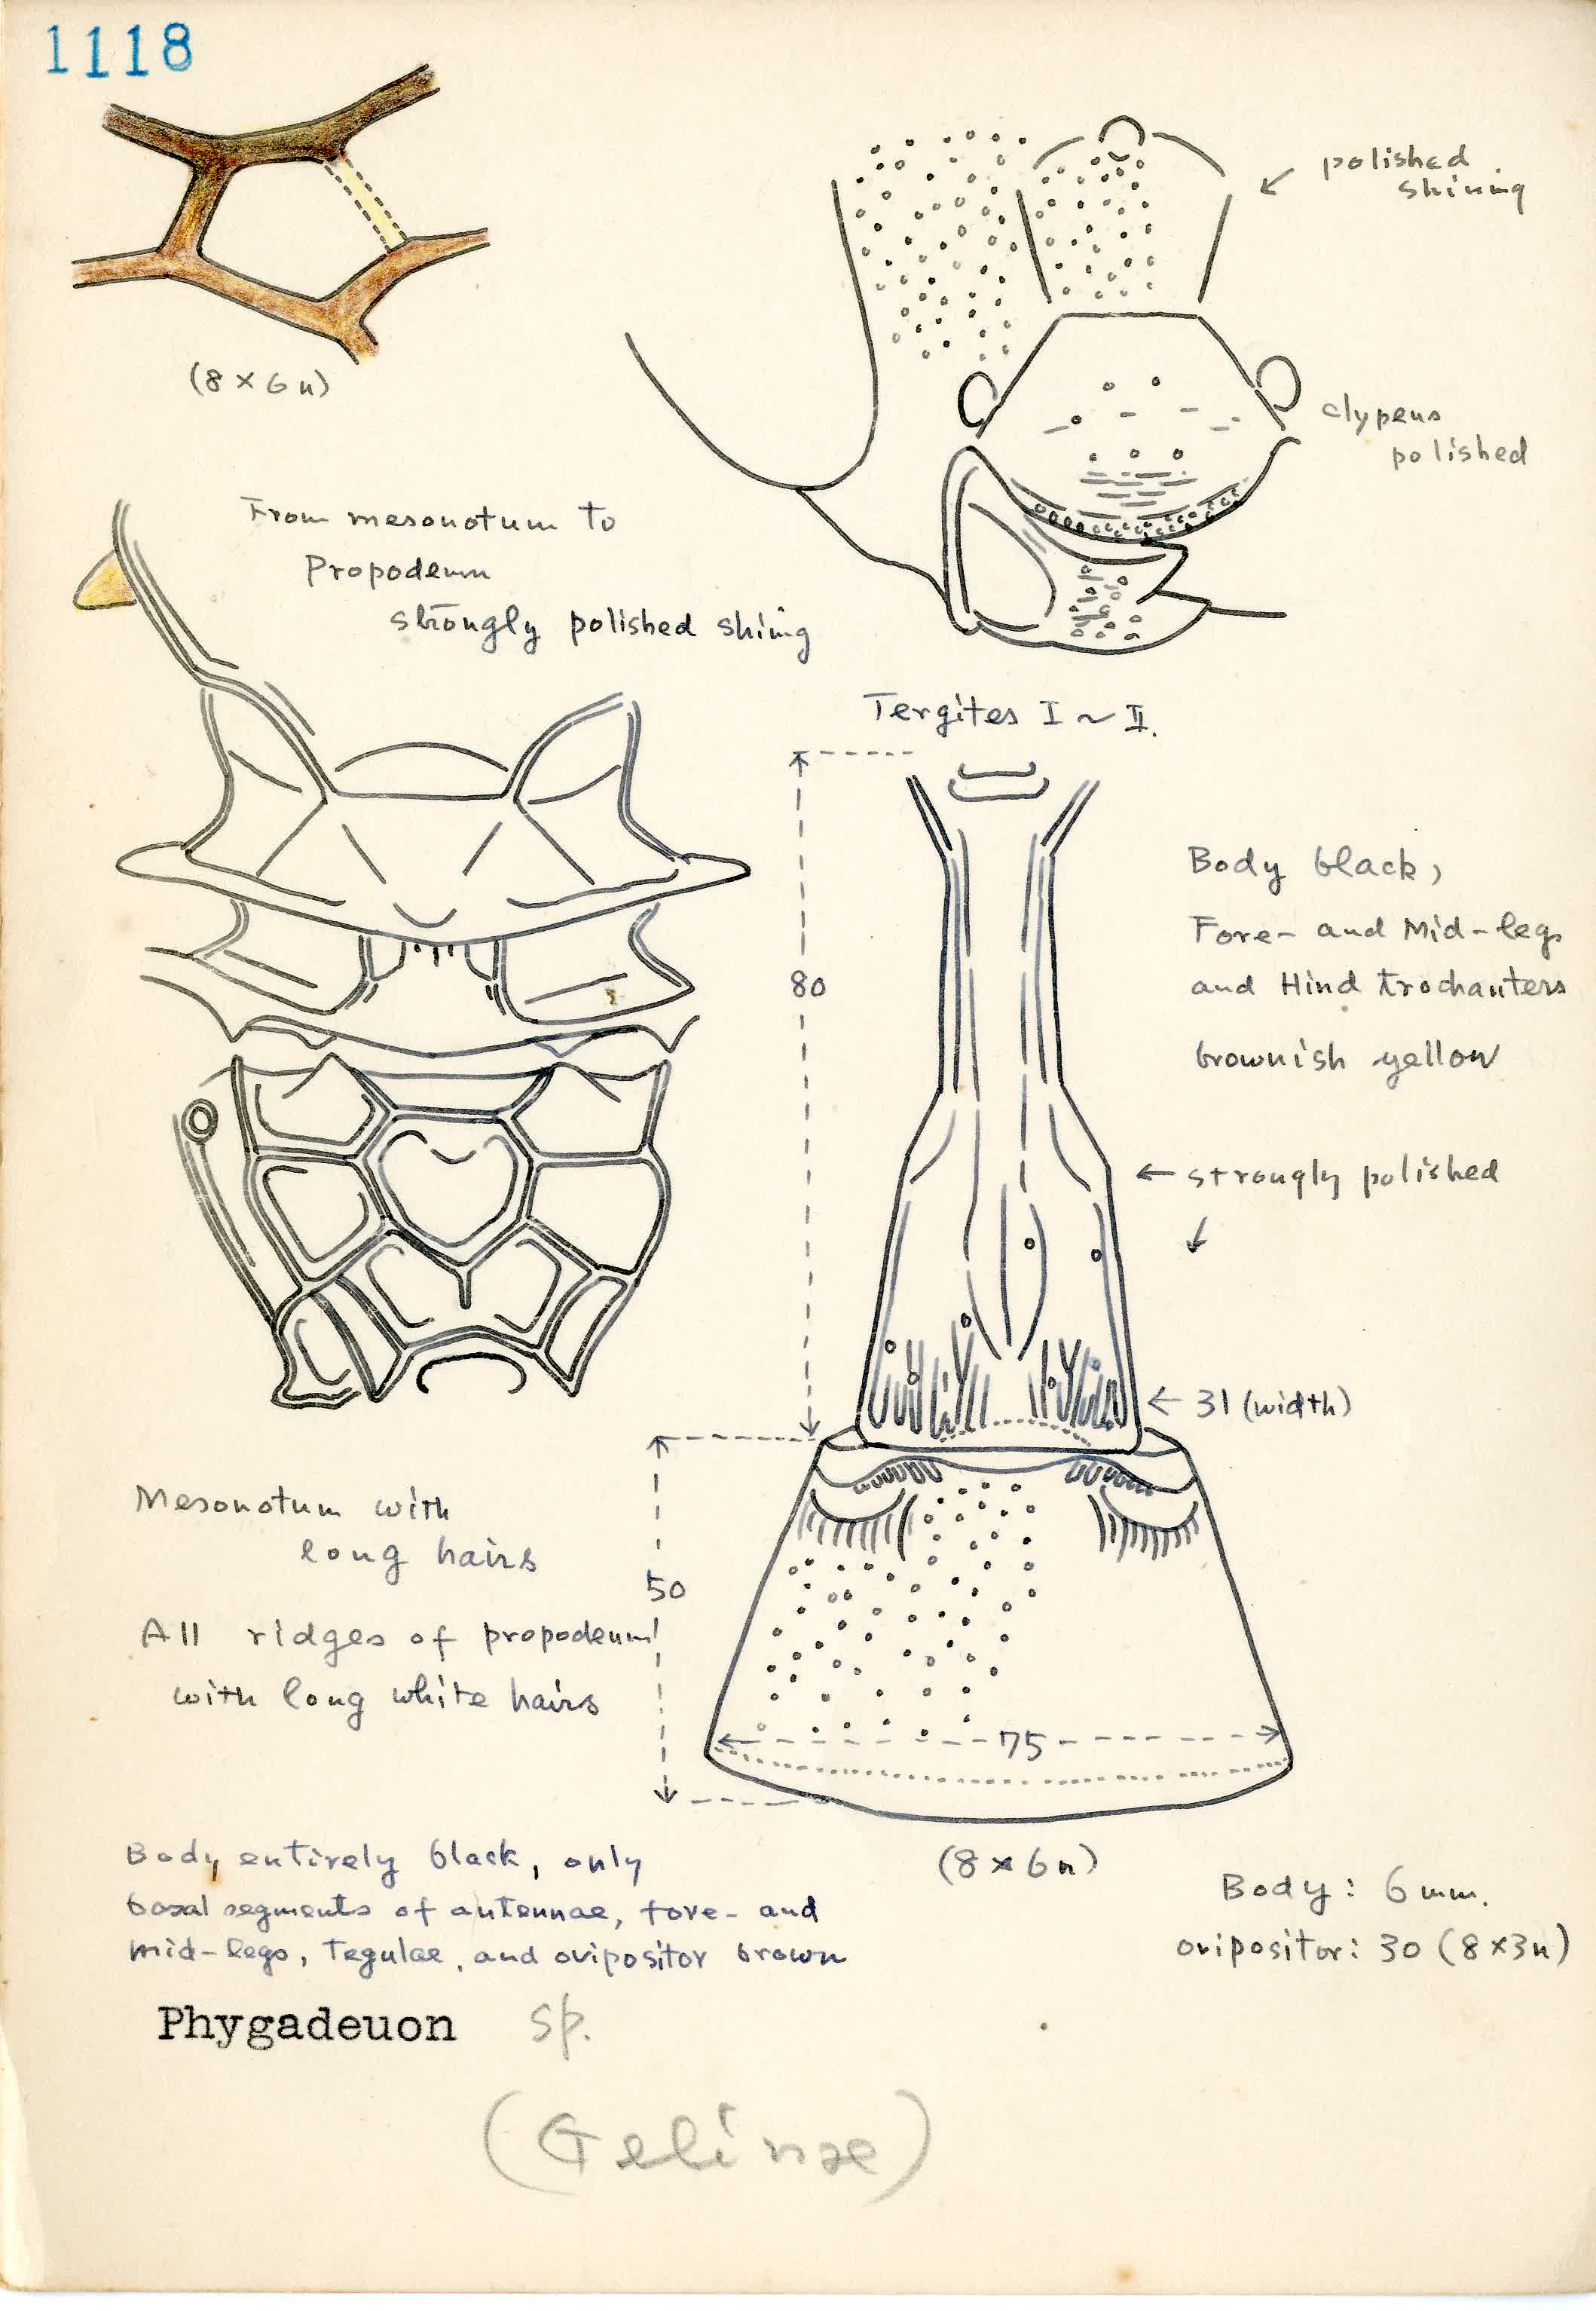 1118
polished
shining
(8 × 6n)
clypeus
polished
From mesonotum to
Propodeum
strongly polished shinig
Tergites I ~ II.
Body black,
Fore- and Mid-legs
and Hind trochanters
brownish yellow
80
← strongly polished
← 31 (width)
Mesonotum with
long hairs
50
All ridges of propodeum
with long white hairs
75
(8 × 6n)
Body entirely black, only
basal segments of antennae, fore- and
mid-legs, Tegulae, and ovipositor brown
Body: 6 mm.
ovipositor: 30 (8×3n)
Phygadeuon sp.
(Gelinae)